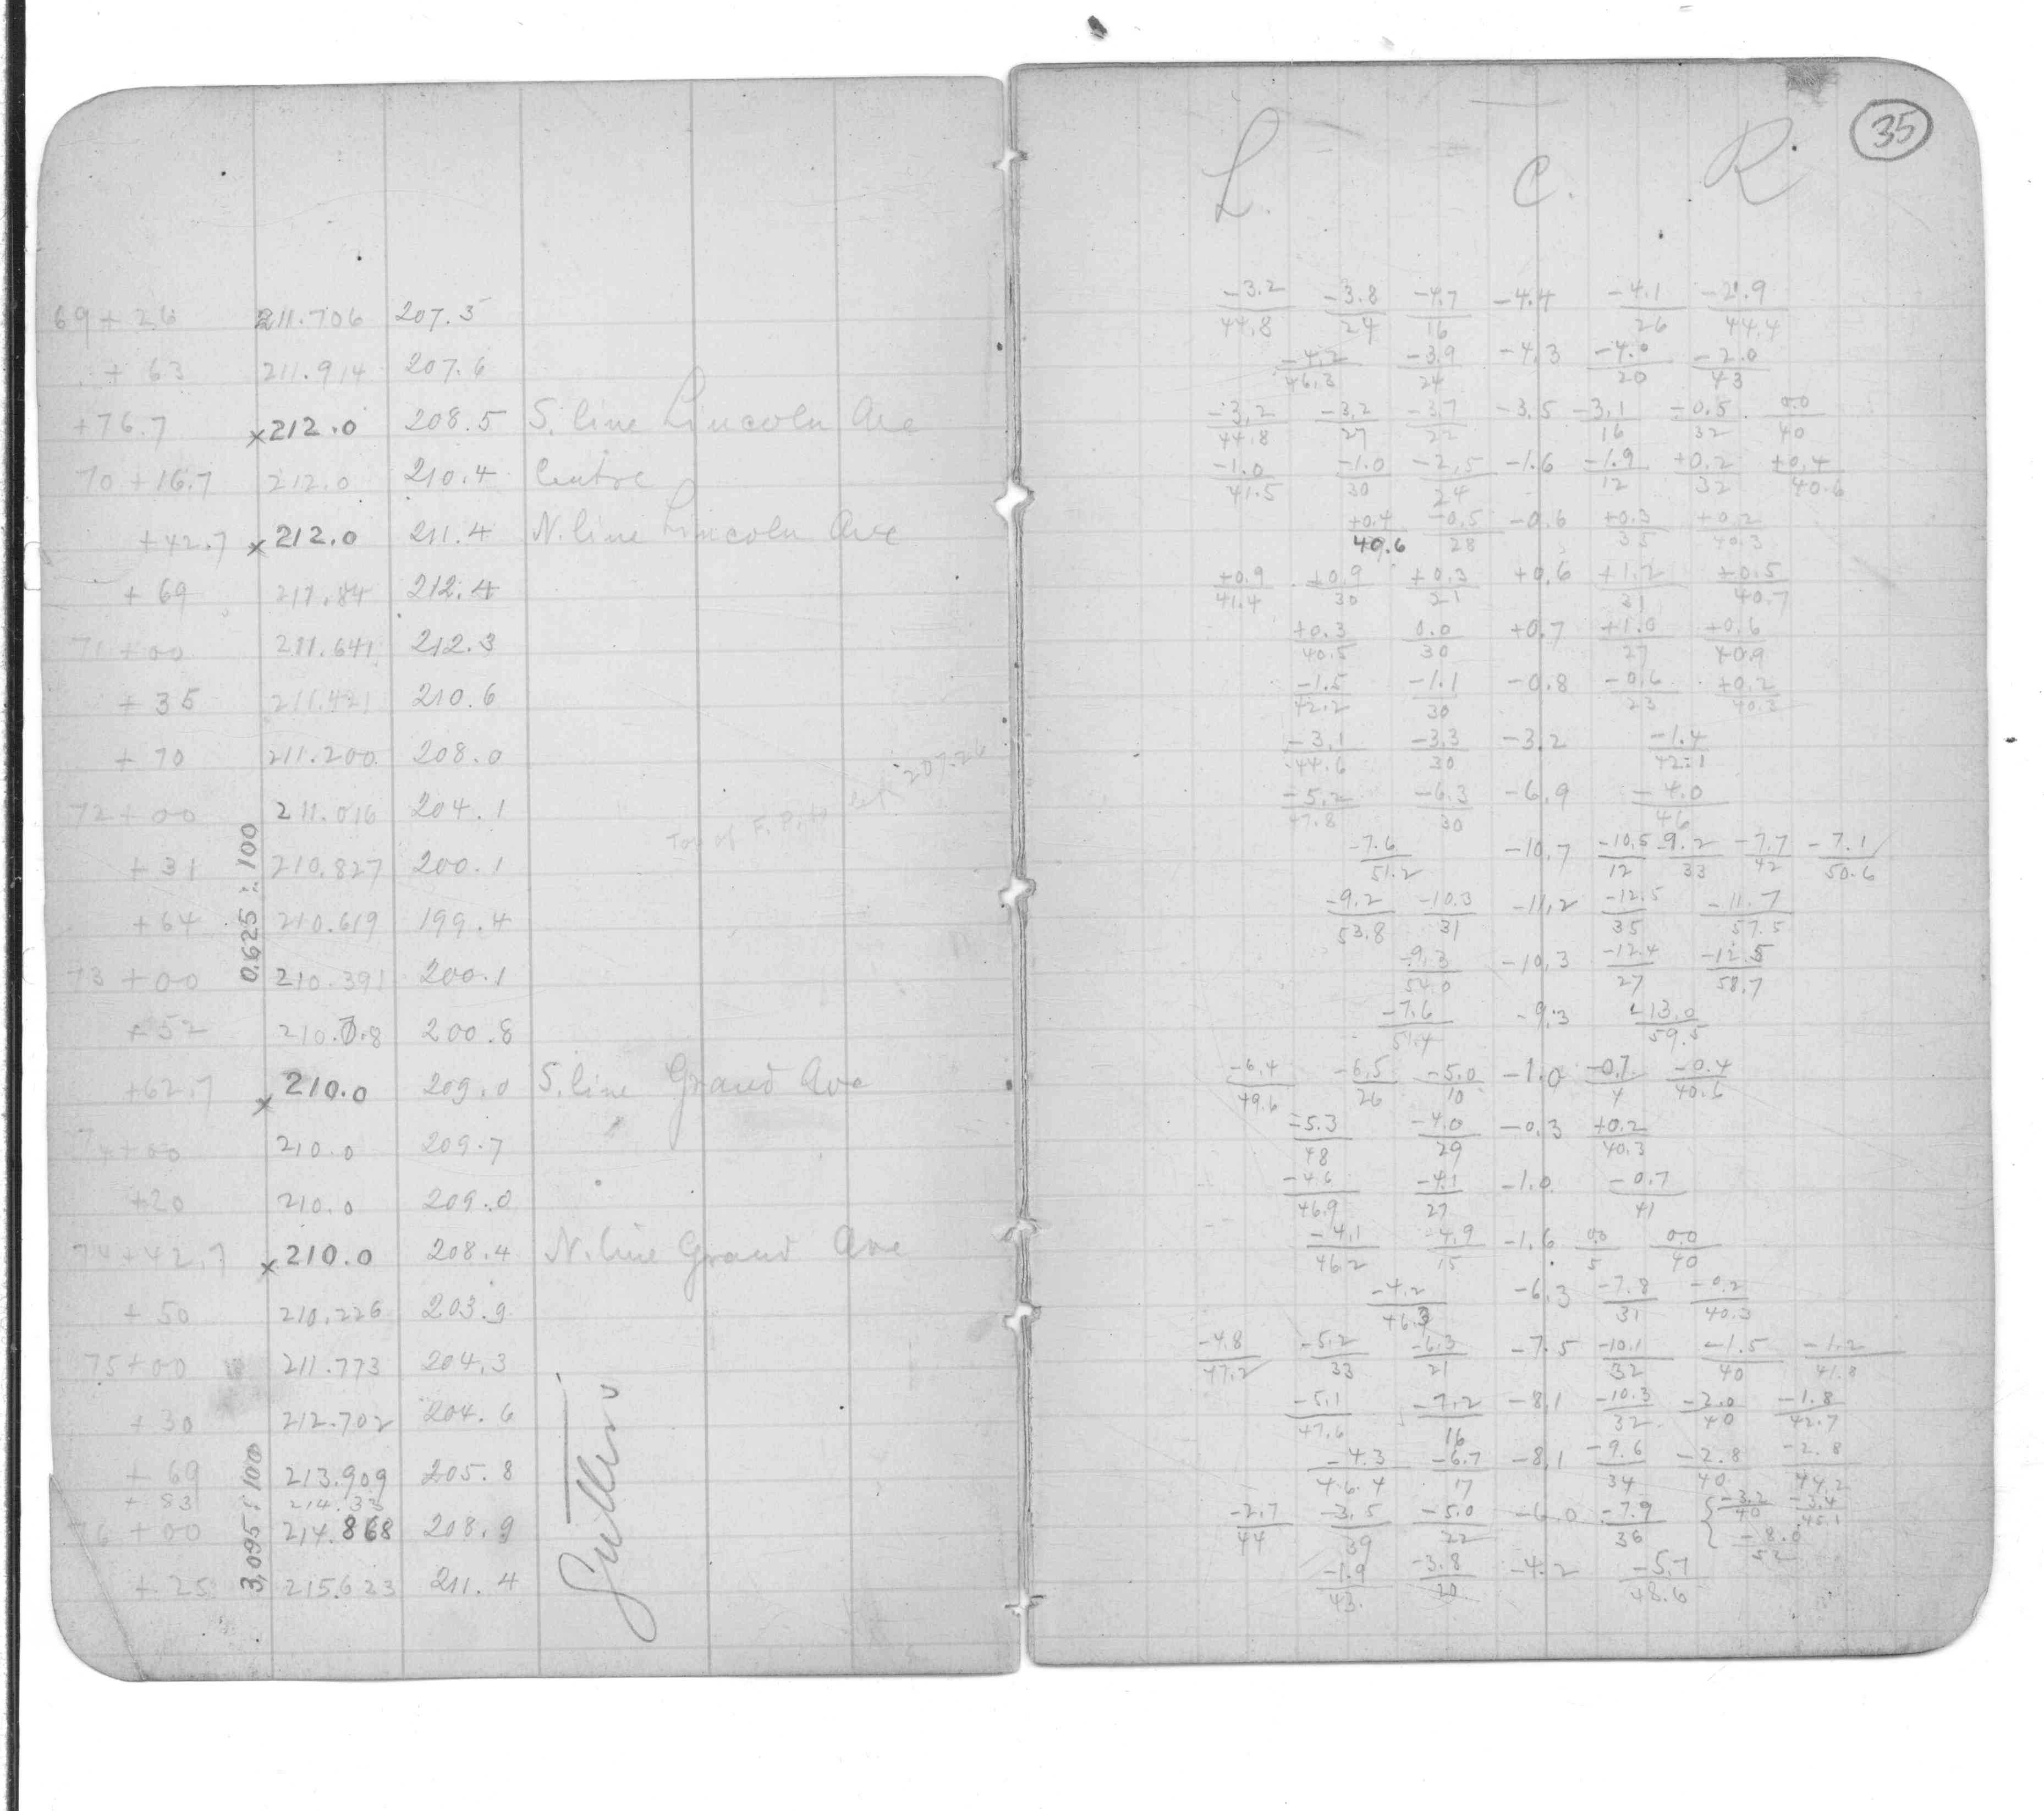 35
L. C. R.
69+26 211.706 207.3 -3.2/44.8 -3.8/24 -4.7/16 -4.4 -4.1/26 -2.9/44.4
+63 211.914 207.6 -4.2/46.3 -3.9/24 -4.3 -4.0/20 -2.0/43
+76.7 x212.0 208.5 S. line Lincoln Ave -3.2/44.8 -3.2/27 -3.7/22 -3.5 -3.1/16 -0.5/32 0.0/40
70+16.7 212.0 210.4 Centre -1.0/41.5 -1.0/30 -2.5/24 -1.6 -1.9/12 +0.2/32 +0.4/40.6
+42.7 x212.0 211.4 N. line Lincoln Ave +0.4/40.6 -0.5/28 -0.6 +0.3/35 +0.2/40.3
+69 211.84 212.4 +0.9/41.4 +0.9/30 +0.3/21 +0.6 +1.2/31 +0.5/40.7
71+00 211.641 212.3 +0.3/40.5 0.0/30 +0.7 +1.0/27 +0.6/40.9
+35 211.421 210.6 -1.5/42.2 -1.1/30 -0.8 -0.6/23 +0.2/40.3
+70 211.200 208.0 -3.1/44.6 -3.3/30 -3.2 -1.4/42.1
Top of F. 207.26
72+00 211.016 204.1 -5.2/47.8 -6.3/30 -6.9 -4.0/46
+31 210.827 200.1 -7.6/51.2 -10.7 -10.5/12 -9.2/33 -7.7/42 -7.1/50.6
0.625 : 100
+64 210.619 199.4 -9.2/53.8 -10.3/31 -11.2 -12.5/35 -11.7/57.5
73+00 210.391 200.1 -9.3/54.0 -10.3 -12.4/27 -12.5/58.7
+52 210.0.8 200.8 -7.6/51.4 -9.3 -13.0/59.5
+62.7 x210.0 209.0 S. line Grand Ave -6.4/49.6 -6.5/26 -5.0/10 -1.0 -0.7/4 -0.4/40.6
74+00 210.0 209.7 -5.3/48 -4.0/29 -0.3 +0.2/40.3
+20 210.0 209.0 -4.6/46.9 -4.1/27 -1.0 -0.7/41
74+42.7 x210.0 208.4 N. line Grand Ave -4.1/46.2 -4.9/15 -1.6 0.0/5 0.0/40
+50 210.226 203.9 -4.2/46.3 -6.3 -7.8/31 -0.2/40.3
75+00 211.773 204.3 -4.8/47.2 -5.2/33 -6.3/21 -7.5 -10.1/32 -1.5/40 -1.2/41.8
+30 212.702 204.6 -5.1/47.6 -7.2/16 -8.1 -10.3/32 -2.0/40 -1.8/42.7
+69 213.909 205.8 -4.3/46.4 -6.7/17 -8.1 -9.6/34 -2.8/40 -2.8/44.2
+83 214.33
76+00 214.868 208.9 -2.7/44 -3.5/39 -5.0/22 -6.0 -7.9/36 { -3.2/40 -3.4/45.1 -8.0/52
+25 215.623 211.4 -1.9/43. -3.8/20 -4.2 -5.7/48.6
3.095 : 100